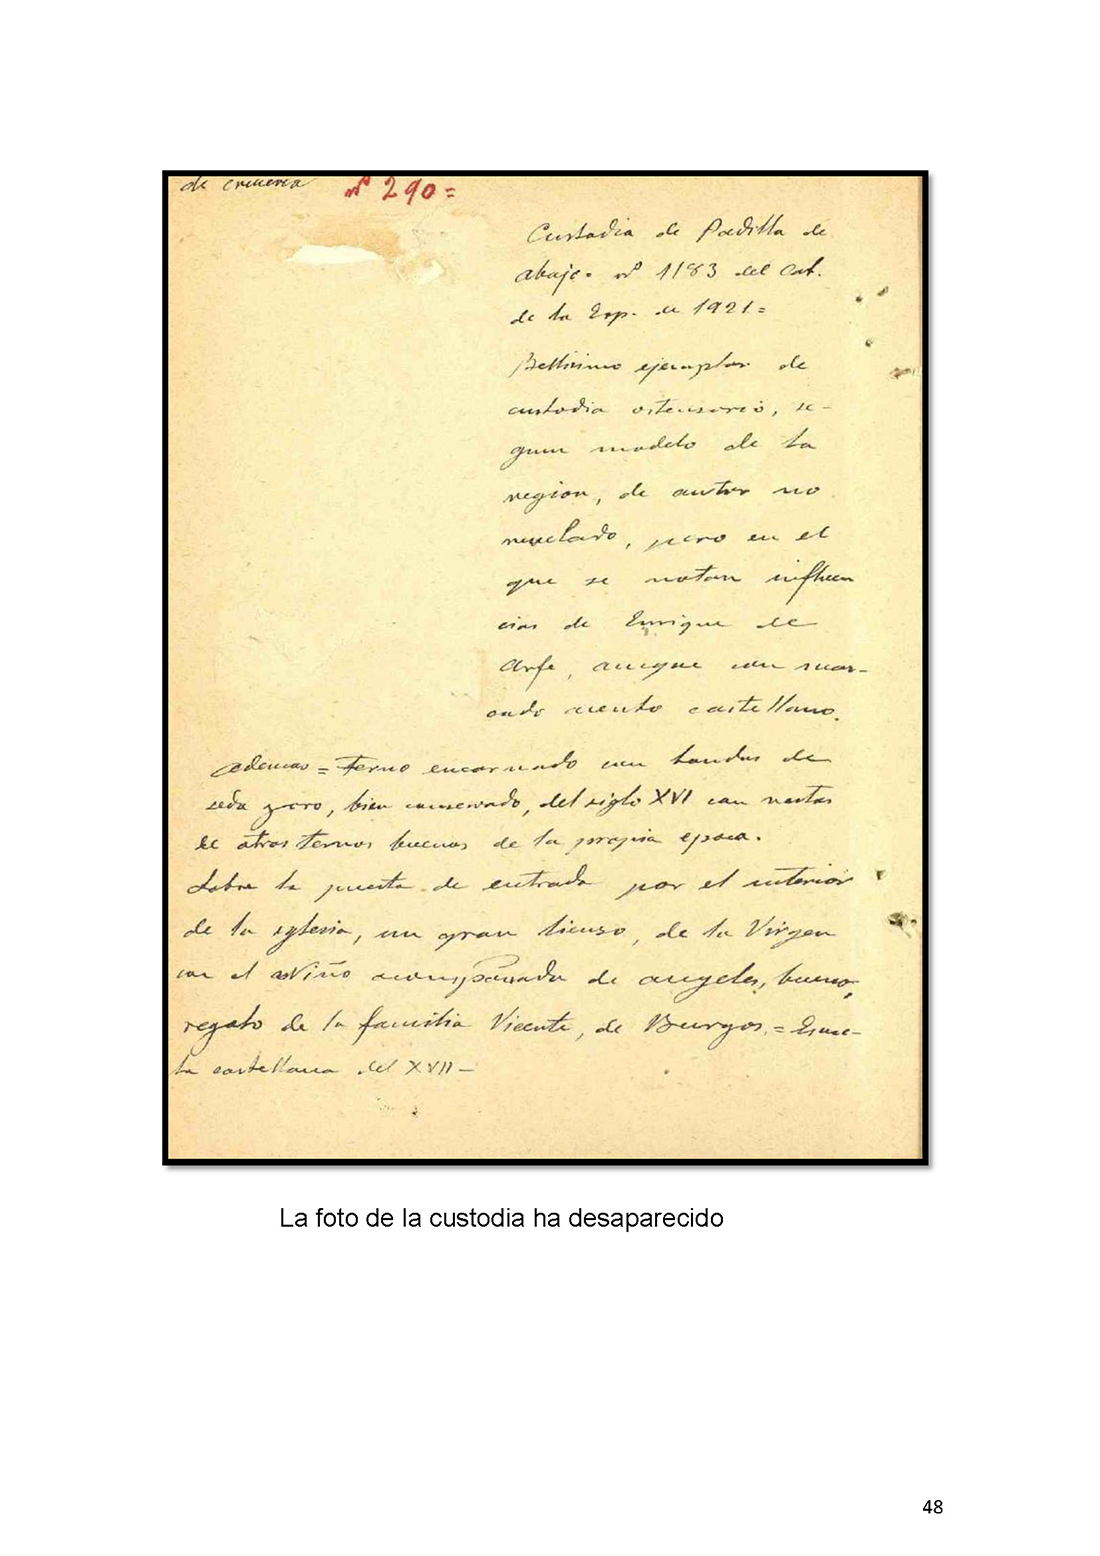 de crucería nº 290=
Custodia de Padilla de
abajo= nº 1183 del Cat.
de la Exp. de 1921=
Bellisimo ejemplar de
custodia ostensorio, se-
gun modelo de la
region, de autor no
revelado, pero en el
que se notan influen
cias de Enrique de
Arfe, aunque con mar-
cado acento castellano.
Ademas= Terno encarnado con bandas de
seda y oro, bien conservado, del siglo XVI con restos
de otros ternos buenos de la propia epoca.
Sobre la puerta de entrada por el interior
de la iglesia, un gran lienzo, de la Virgen
con el Niño acompañada de angeles, bueno,
regalo de la familia Vicente, de Burgos.= Escue-
la castellana del XVII-
La foto de la custodia ha desaparecido
48